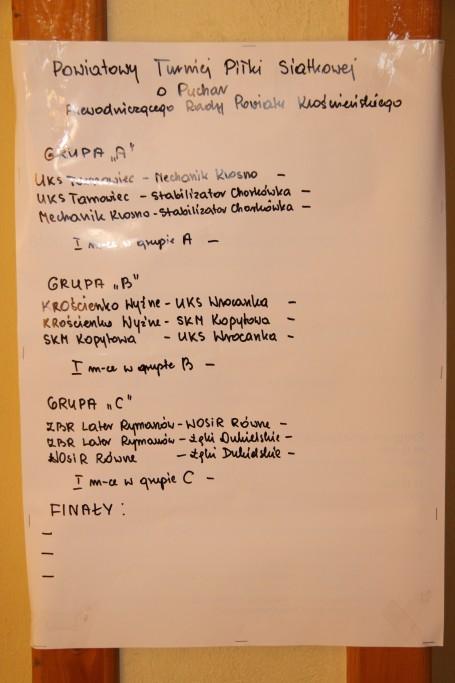 Powiatowy Turniej Piłki Siatkowej
o Puchar
Przewodniczącego Rady Powiatu Krośnieńskiego
GRUPA „A"
UKS Tarnowiec - Mechanik Krosno -
UKS Tarnowiec - Stabilizator Chorkówka -
Mechanik Krosno - Stabilizator Chorkówka -
I m-ce w grupie A -
GRUPA „B"
KROścienko Wyżne - UKS Wrocanka -
KROścienko Wyżne - SKM Kopytowa -
SKM Kopytowa - UKS Wrocanka -
I m-ce w grupie B -
GRUPA „C"
ZBR Later Rymanów - WOSiR Równe -
ZBR Later Rymanów - Łęki Dukielskie -
WOSiR RÓWNE - Łęki Dukielskie -
I m-ce w grupie C -
FINAŁY :
-
-
-